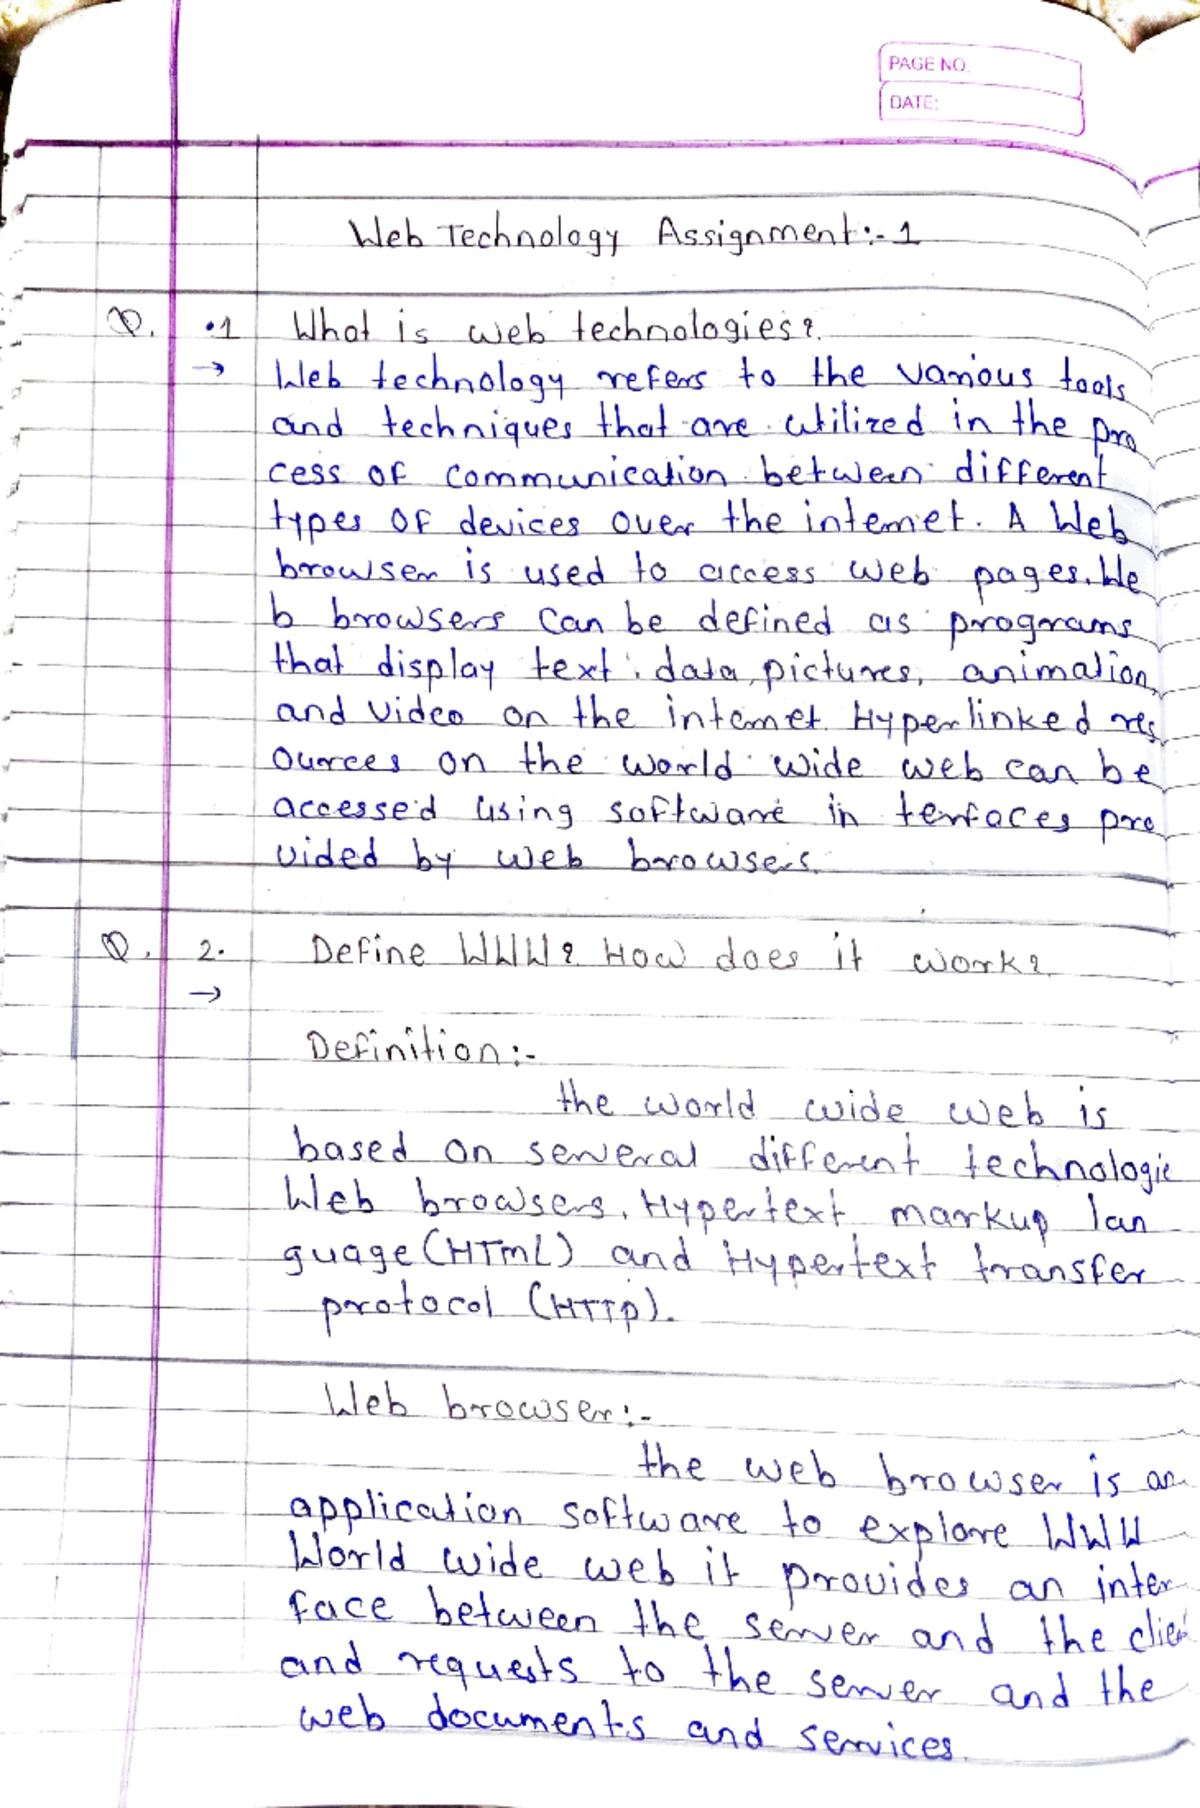 PAGE NO.
DATE:
Web Technology Assignment:- 1
Q. .1 What is web technologies?
→ Web technology refers to the various tools
and techniques that are utilized in the pro
cess of communication between different
types of devices over the internet. A Web
browser is used to access web pages. We
b browsers can be defined as programs
that display text, data, pictures, animation,
and video on the internet. Hyperlinked res
ources on the world wide web can be
accessed using software in terfaces pro
vided by web browsers.
Q. 2. Define WWW? How does it work?
→
Definition:-
the world wide web is
based on several different technologie
Web browsers, Hypertext markup lan
guage (HTML) and Hypertext transfer
protocol (HTTP).
Web browser:-
the web browser is an
application software to explore WWW
World wide web it provides an inter
face between the server and the client
and requests to the server and the
web documents and services.